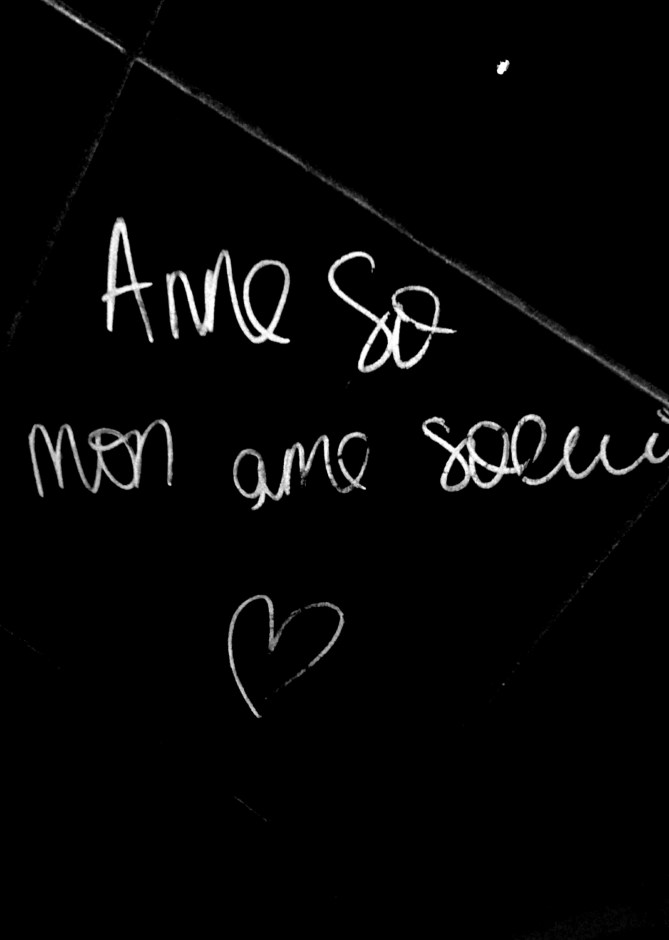 Anne So
mon ame soeur